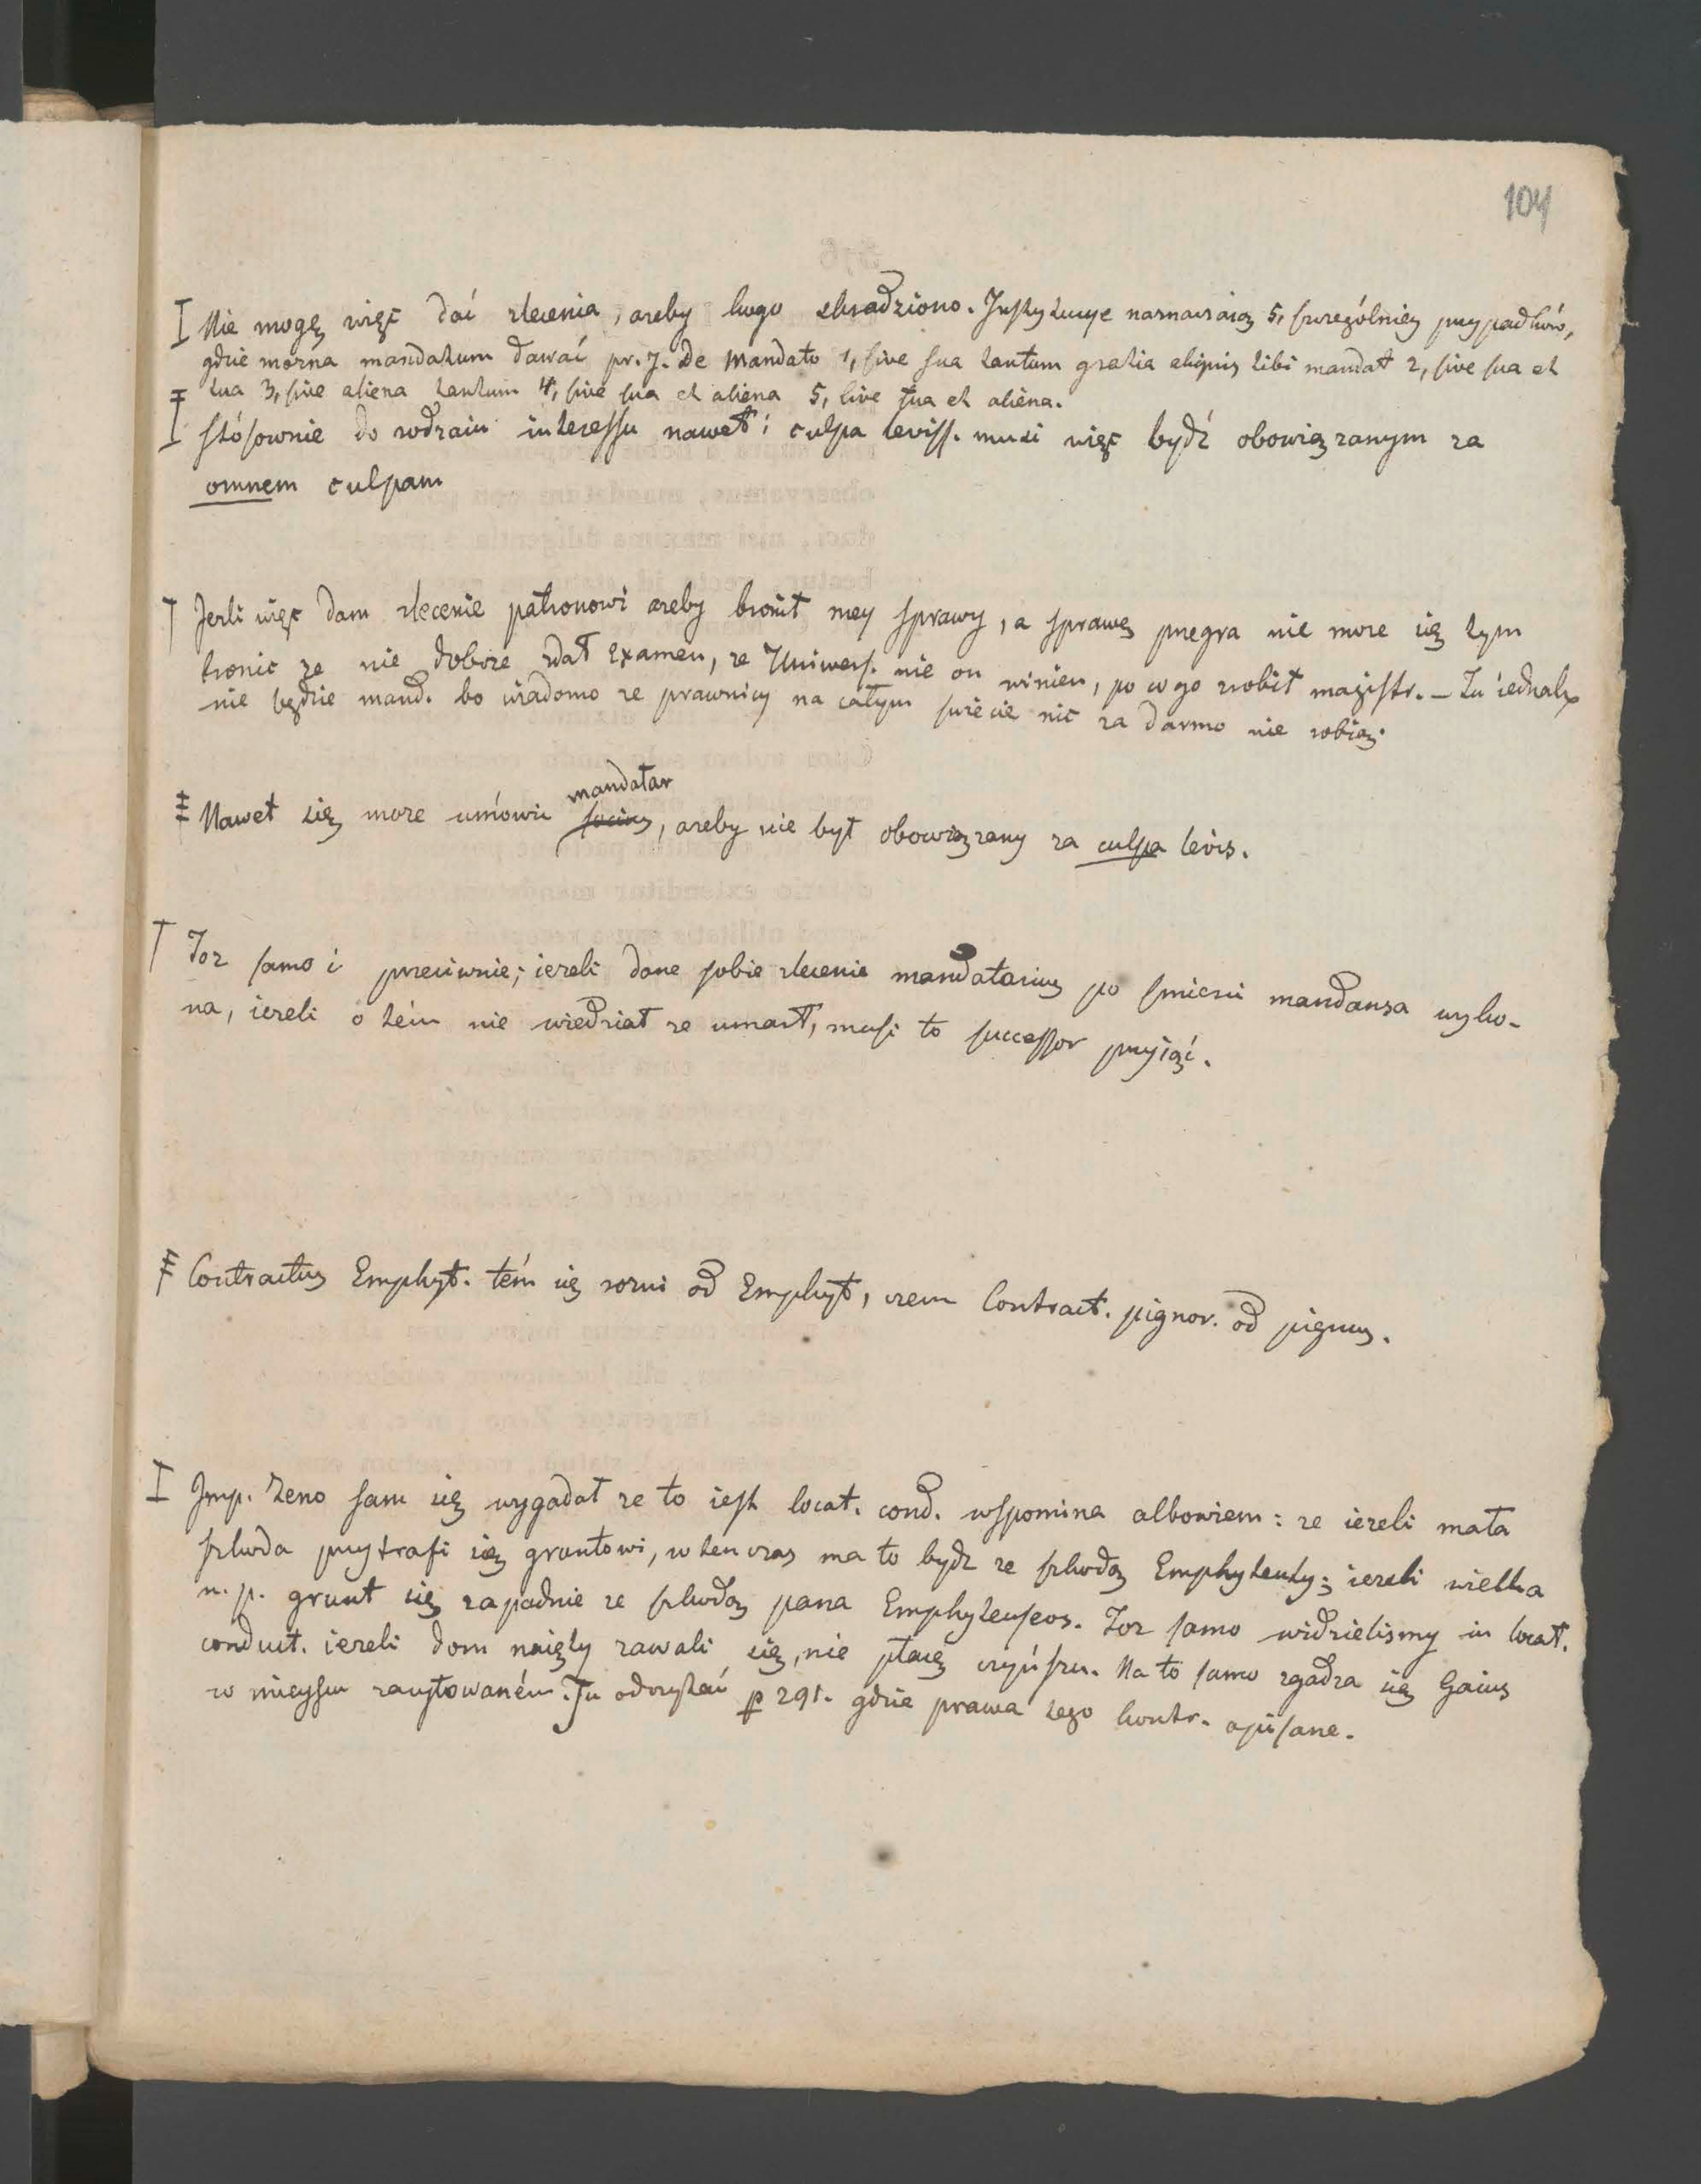 104
I Nie mogę więc dać zlecenia, azeby kogo okradziono. Instytucye naznaczaią 5, szczególniey przypadków,
gdzie mozna mandatum dawać pr. J. De Mandato 1, sive sua tantum gratia aliquis tibi mandat 2, sive sua et
tua 3, sive aliena tantum 4, sive sua et aliena 5, sive tua et aliena.
I stósownie do rodzaiu interessu nawet i culpa leviss. musi więc bydź obowiązanym za
omnem culpam
† Jezli więc dam zlecenie patronowi azeby bronił mey sprawy, a sprawę przegra nie moze się tym
bronic ze nie dobrze zdał Examen, ze Uniwers. nie on winien, po co go zrobił magistr. – Tu iednak
nie będzie mand. bo wiadomo ze prawnicy na całym świecie nic za darmo nie robią.
mandatar
‡ Nawet się moze umówic socius, azeby nie był obowiązany za culpa levis.
† Toz samo i przeciwnie; iezeli dane sobie zlecenie mandatarius po smierci mandansa wyko-
na, iezeli o tém nie wiedział ze umarł, musi to successor przyiąć.
‡ Contractus Emphyt. tém się rozni od Emphyt, czem Contract. pignor. od pignus.
I Imp. Zeno sam się wygadał ze to iest locat. cond. wspomina albowiem: ze iezeli mała
szkoda przytrafi się gruntowi, w ten czas ma to bydz ze szkodą Emphyteuty; iezeli wielka
n. p. grunt się zapadnie ze szkodą pana Emphyteuseos. Toz samo widzielismy in locat.
conduct. iezeli dom naięty zawali się, nie płacę czynszu. Na to samo zgadza się Gaius
w mieyscu zacytowaném. Tu odczytać p 291. gdzie prawa tego kontr. opisane.